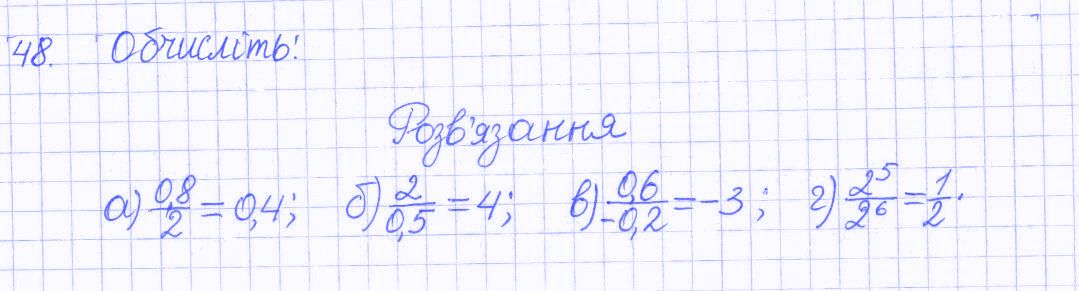 48. Обчисліть:
Розв'язання
а) 0,8/2 = 0,4; б) 2/0,5 = 4; в) 0,6/-0,2 = -3; г) 2⁵/2⁶ = 1/2.